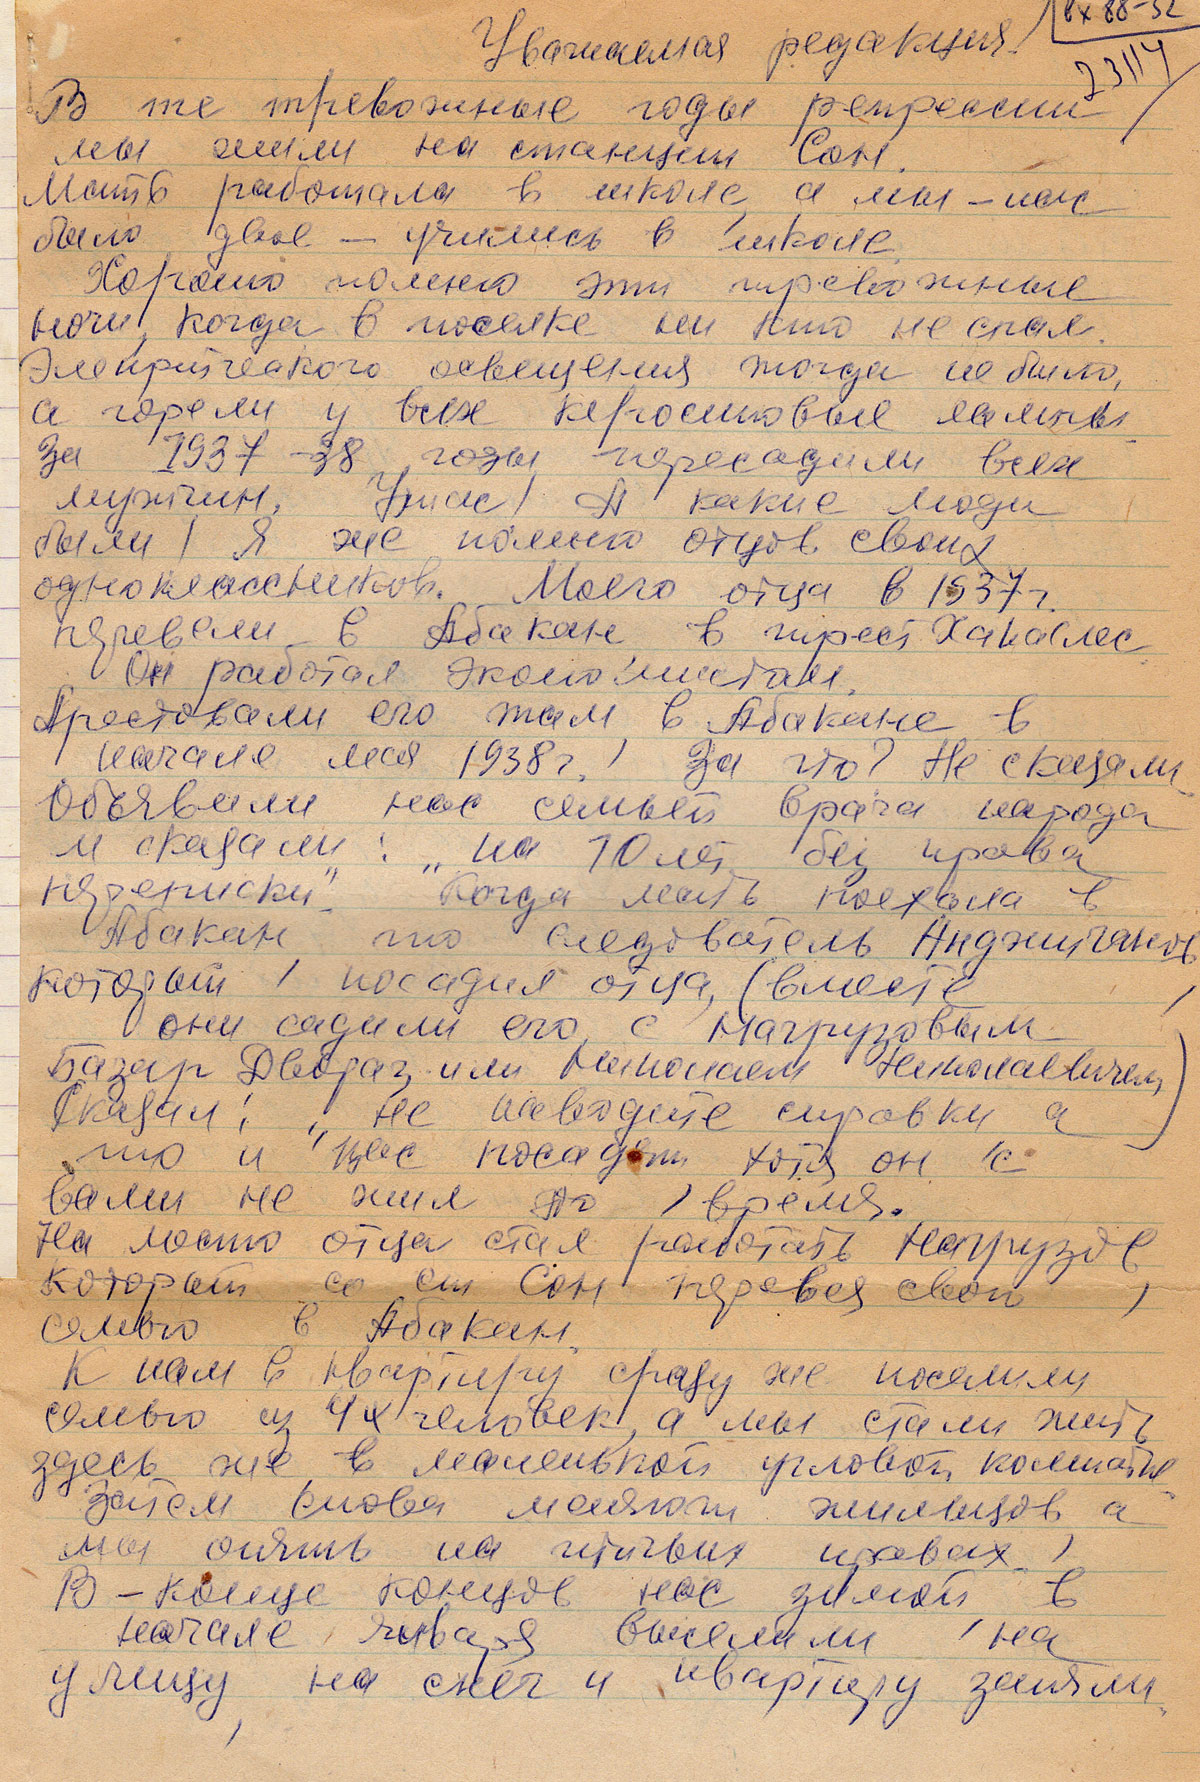 вх 88-52
23114
Уважаемая редакция!
В те тревожные годы репрессии
мы жили на станции Сон.
Мать работала в школе, а мы – нас
было двое – учились в школе.
Хорошо помню эти тревожные
ночи, когда в поселке ни кто не спал.
Электрического освещения тогда не было,
а горели у всех керосиновые лампы.
За 1937-38 годы пересадили всех
мужчин. Ужас! А какие люди
были! Я же помню отцов своих
одноклассников. Моего отца в 1937 г.
перевели в Абакан, в трест Хакаслес
Он работал экономистом.
Арестовали его там, в Абакане в
начале мая 1938 г.! За что? Не сказали.
Объявили нас семьей врага народа
и сказали: „на 10 лет без права
переписки". Когда мать поехала в
Абакан то следователь Анджиганов
который посадил отца, (вместе
они садили его с Нагрузовым
Базар Дворац или Николаем Николаевичем)
Сказал: „не наводите справки а
то и вас посадят хотя он с
вами не жил то время.
На место отца стал работать Нагрузов
который со ст Сон перевез свою
семью в Абакан.
К нам в квартиру сразу же поселили
семью из 4х человек, а мы стали жить
здесь же в маленькой угловой комнате.
Затем снова меняют жильцов а
мы опять на птичьих правах!
В – конце концов нас зимой в
начале января выселили на
улицу на снег и квартиру заняли.